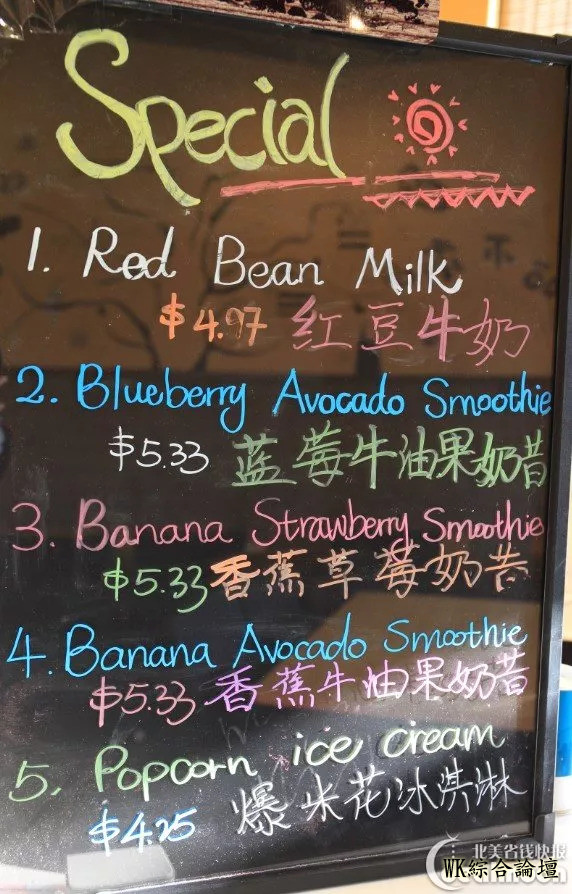 Special
1. Red Bean Milk
$4.97 红豆牛奶
2. Blueberry Avocado Smoothie
$5.33 蓝莓牛油果奶昔
3. Banana Strawberry Smoothie
$5.33 香蕉草莓奶昔
4. Banana Avocado Smoothie
$5.33 香蕉牛油果奶昔
5. Popcorn ice cream
$4.25 爆米花冰淇淋
北美省钱快报
WK綜合論壇